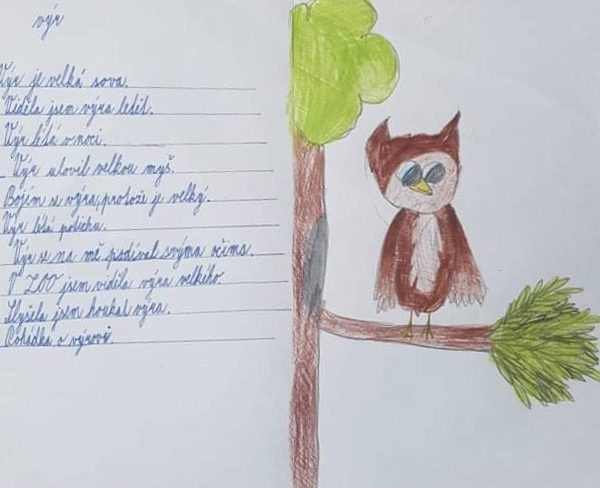 výr
Výr je velká sova.
Viděla jsem výra letět.
Výr létá v noci.
Výr ulovil velkou myš.
Bojím se výra, protože je velký.
Výr létá potichu.
Výr se na mě podíval svýma očima.
V ZOO jsem viděla výra velkého.
Slyšela jsem houkat výra.
Pohádka o výrovi.